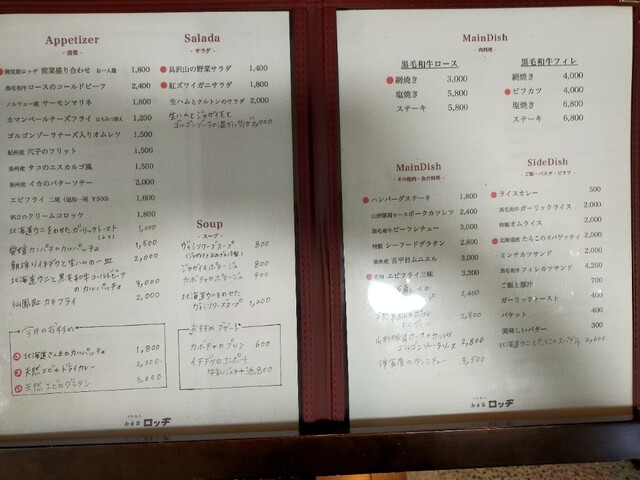 Appetizer
- 前菜 -
前菜盛り合わせ お一人様 1,800
黒毛和牛ロースのコールドビーフ 2,400
ノルウェー産 サーモンマリネ 1,600
カマンベールチーズフライ はちみつ添え 1,200
ゴルゴンゾーラチーズ入りオムレツ 1,500
紀州産 穴子のフリット 1,500
泉州産 タコのエスカルゴ風 1,500
泉州産 イカのバターソテー 2,000
エビフライ 二尾 (追加一尾 ¥500) 1,600
帆立のクリームコロッケ 1,800
北海道ウニをのせたガーリックトースト 1,000
カンパチのカルパッチョ 1,500
イチヂクと生ハムの一皿 2,000
北海道ウニと黒毛和牛コールドビーフ
のカルパッチョ 3,000
仙鳳趾 カキフライ 2,000
今日のおすすめ
① 北海道さんまのカルパッチョ 1,800
② 天然エビのドライカレー
③ 天然エビのグラタン 3,000
Salada
- サラダ -
具沢山の野菜サラダ 1,400
紅ズワイガニサラダ 1,800
生ハムとクルトンのサラダ 2,000
生ハムとジャガイモと
Soup
- スープ -
ヴィシソワーズスープ 800
ジャガイモポタージュ 800
カボチャのポタージュ 800
北海道ウニをのせた
ヴィシソワーズスープ 1,200
おすすめ デザート
カボチャのプリン 600
イチヂクのコンポート
800
ロッヂ
MainDish
- 肉料理 -
黒毛和牛ロース
網焼き 3,000
塩焼き 5,800
ステーキ 5,800
黒毛和牛フィレ
網焼き 4,000
ビフカツ 4,000
塩焼き 6,800
ステーキ 6,800
MainDish
- その他肉・魚介料理 -
ハンバーグステーキ 1,800
山形豚肩ロースポークカツレツ 2,400
黒毛和牛ビーフシチュー 3,000
特製 シーフードグラタン 2,800
泉州産 舌平目ムニエル 3,000
名物 エビフライ三味 3,300
2,400
2,800
ゴルゴンゾーラソース 2,800
洋食屋のタンシチュー 3,500
SideDish
- ご飯・パスタ・ピラフ -
ライスカレー 500
黒毛和牛ガーリックライス 2,000
特製オムライス 2,000
北海道産 たらこのスパゲッティ 2,000
ミンサカツサンド 2,000
黒毛和牛フィレカツサンド 4,200
ご飯と豚汁 700
ガーリックトースト 400
バケット 400
美味しいバター 300
北海道ウニとたらこのスパゲティ 2,600
ロッヂ